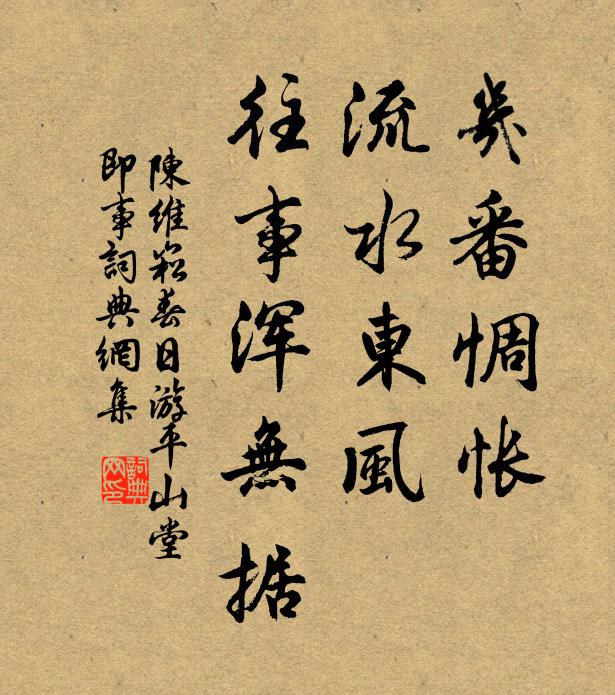 幾番惆怅
流水東風
往事浑無据
陳維崧春日游平山堂
即事詞典網集
詞典
网印